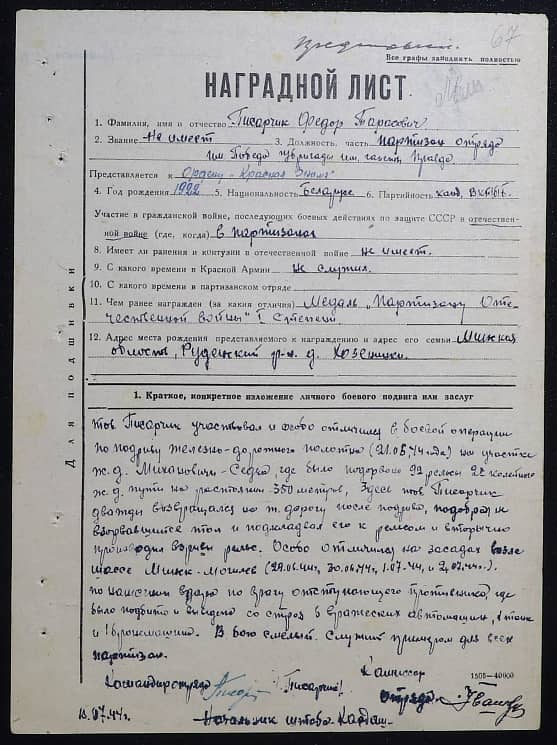 67
Все графы заполнять полностью
НАГРАДНОЙ ЛИСТ
1. Фамилия, имя и отчество Писарчик Федор Тарасович.
2. Звание Не имеет 3. Должность, часть партизан отряда
им. Победа бригады им. газеты Правда
Представляется к Ордену "Красное Знамя"
4. Год рождения 1922 5. Национальность Беларус 6. Партийность канд. ВКП(б)
Участие в гражданской войне, последующих боевых действиях по защите СССР и отечествен-
ной войне (где, когда) в партизанах
8. Имеет ли ранения и контузии в отечественной войне не имеет.
9. С какого времени в Красной Армии не служил.
10. С какого времени в партизанском отряде
11. Чем ранее награжден (за какия отличия) Медаль "Партизану Оте-
чественной войны" I степени
12. Адрес места рождения представляемого к награждению и адрес его семьи Минская
область, Руденский р-н д.
Для подшивки
1. Краткое, конкретное изложение личного боевого подвига или заслуг
тов. Писарчик участвовал и особо отличился в боевой операции
по подрыву железно-дорожного полотна (21.06.44 года) на участке
ж.д. Михановичи-Седча, где было подорвано 92 рельсы 2х колейного
ж.д. пути на расстоянии 350 метров, Здесь тов Писарчик
дважды возвращался на ж. дорогу после подрыва, подобрал не
взорвавшийся тол и подкладывал его к рельсам и вторично
производил взрывы рельс. Особо отличился на засадах возле
шоссе Минск-Могилев (29.06.44г, 30.06.44г, 1.07.44, и 2.07.44г.).
по нанесении удара по врагу отступающего противника, где
было подбито и выведено со строя вражеских автомашин, 1 танк
и 1 бронемашина. В бою смелый. Служит примером для всех
партизан.
Командир отряда Писарчик
Комиссар
1505—40000
отряда
10.07.44г. Начальник штаба Кардаш